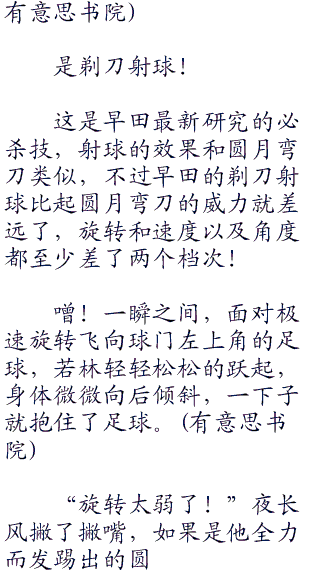 有意思书院)
是剃刀射球！
这是早田最新研究的必
杀技，射球的效果和圆月弯
刀类似，不过早田的剃刀射
球比起圆月弯刀的威力就差
远了，旋转和速度以及角度
都至少差了两个档次！
噌！一瞬之间，面对极
速旋转飞向球门左上角的足
球，若林轻轻松松的跃起，
身体微微向后倾斜，一下子
就抱住了足球。(有意思书
院)
“旋转太弱了！”夜长
风撇了撇嘴，如果是他全力
而发踢出的圆